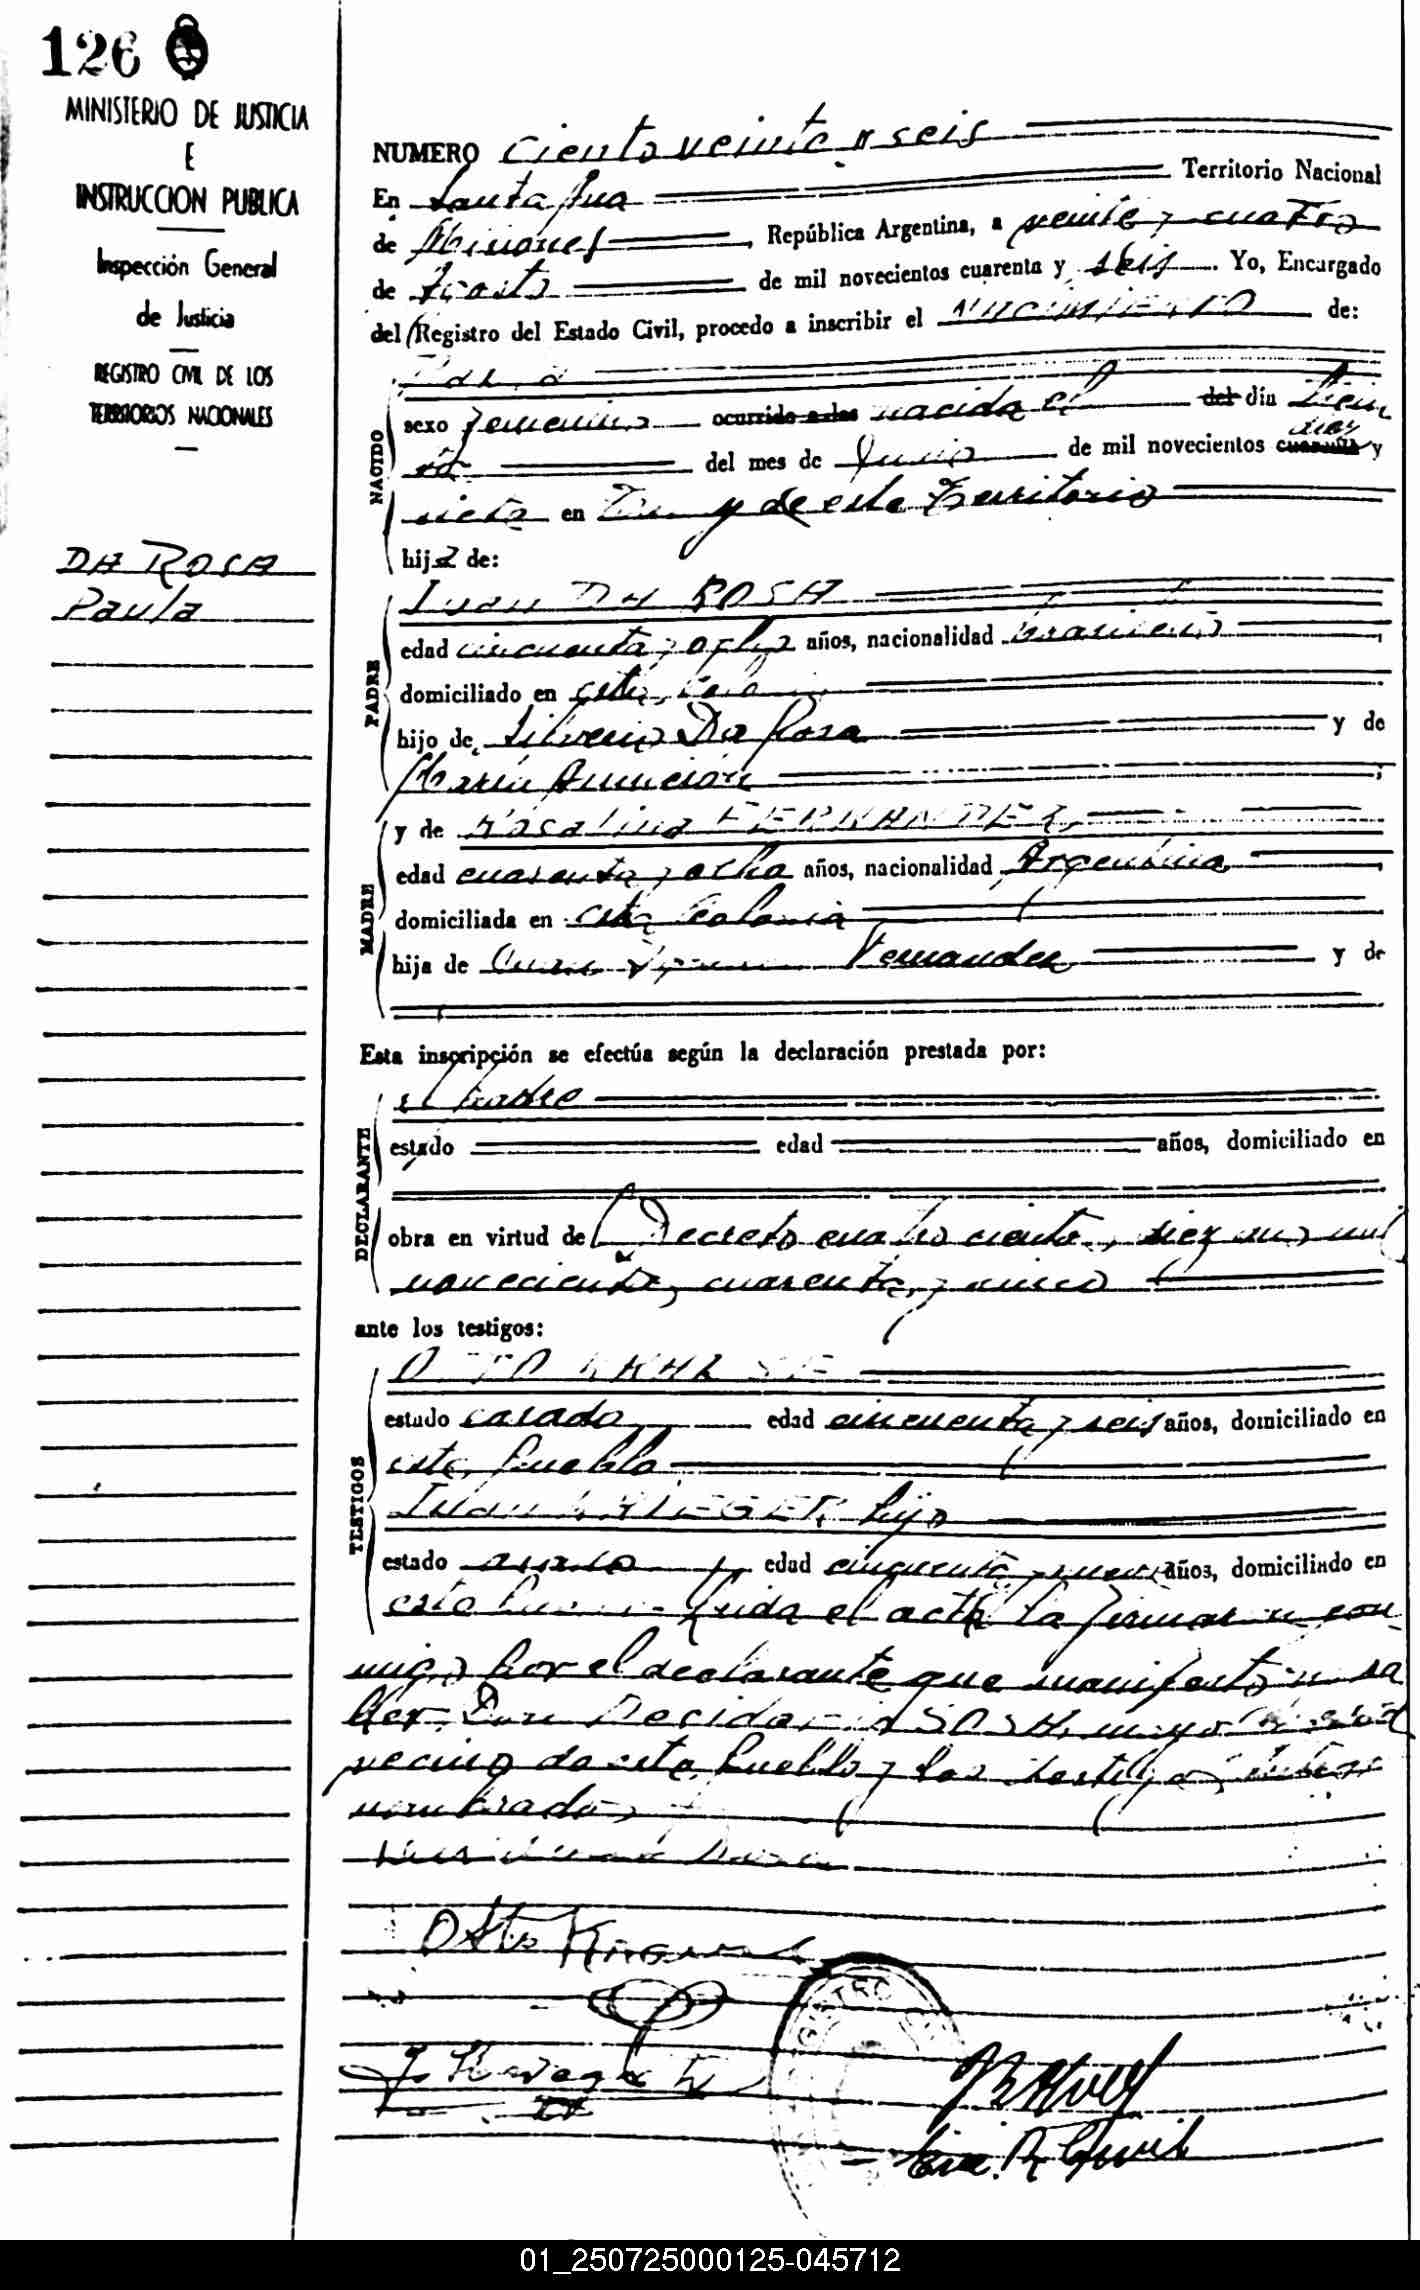 126
MINISTERIO DE JUSTICIA
E
INSTRUCCION PUBLICA
Inspección General
de Justicia
REGISTRO CIVIL DE LOS
TERRITORIOS NACIONALES
DA ROSA
Paula
NUMERO ciento veinte y seis
En Santa Ana Territorio Nacional
de Misiones, República Argentina, a veinte y cuatro
de Agosto de mil novecientos cuarenta y seis. Yo, Encargado
del Registro del Estado Civil, procedo a inscribir el NACIMIENTO de:
NACIDO
Paula
sexo femenino ocurrido a las nacida el del día
del mes de Junio de mil novecientos cuarenta diez y
siete en y de este Territorio
hija de:
PADRE
Juan DA ROSA
edad cincuenta y ocho años, nacionalidad brasilero
domiciliado en esta Colonia
hijo de Silverio Da Rosa y de
María Asunción
MADRE
y de Rosalina FERNANDEZ,
edad cuarenta y ocho años, nacionalidad Argentina
domiciliada en esta Colonia
hija de Fernandez y de
Esta inscripción se efectúa según la declaración prestada por:
DECLARANTE
el Padre
estado edad años, domiciliado en
obra en virtud de Decreto cuatro cientos diez mil
novecientos cuarenta y cinco
ante los testigos:
TESTIGOS
OTO
estado casado edad cincuenta y seis años, domiciliado en
este Pueblo
Juan KRIEGER hijo
estado casado edad cincuenta y años, domiciliado en
este Leida el acta la firmaron con-
migo por el declarante que manifestó no sa
ber Don SOSA, mayor de edad
vecino de este Pueblo y los testigos
nombrados
Otto
REGISTRO
01_250725000125-045712